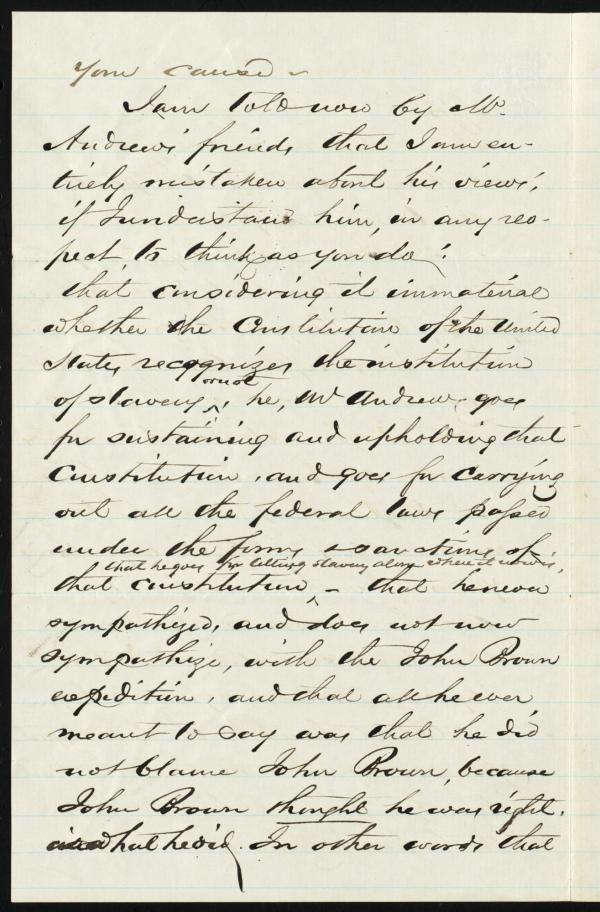 your cause –
I am told now by Mr.
Andrew's friends that I am en-
tirely mistaken about his views,
if I understand him, in any res-
pect, to think as you do;
that considering it immaterial
whether the Constitution of the United
States recognizes the institution
of slavery or not, he, Mr Andrew, goes
for sustaining and upholding that
Constitution, and goes for carrying
out all the federal laws passed
under the forms & sanctions of
that constitution, that he goes for letting slavery alone where it now is, – that he never
sympathized, and does not now
sympathize, with the John Brown
expedition, and that all he ever
meant to say was that he did
not blame John Brown, because
John Brown thought he was right,
in what he did. In other words that